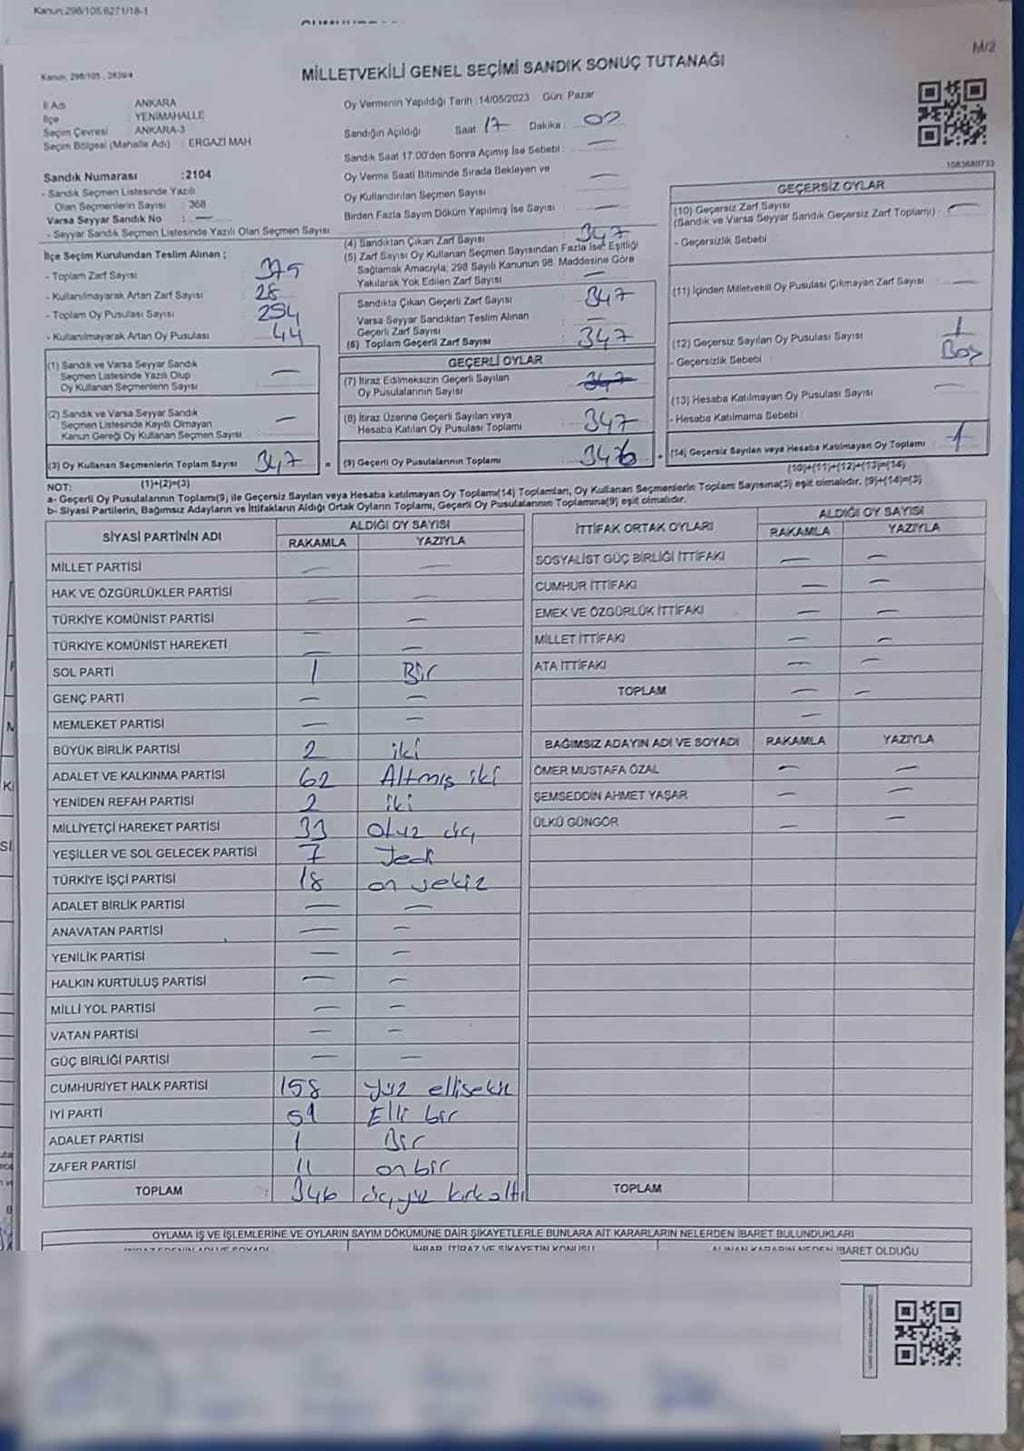 Kanun,298/105,6271/18-1
M/2
Kanun, 298/105
MİLLETVEKİLİ GENEL SEÇİMİ SANDIK SONUÇ TUTANAĞI
İl Adı ANKARA
İlçe YENİMAHALLE
Seçim Çevresi ANKARA-3
Seçim Bölgesi (Mahalle Adı) : ERGAZİ MAH
Sandık Numarası :2104
- Sandık Seçmen Listesinde Yazılı
Olan Seçmenlerin Sayısı : 368
Varsa Seyyar Sandık No : —
- Seyyar Sandık Seçmen Listesinde Yazılı Olan Seçmen Sayısı
Oy Vermenin Yapıldığı Tarih :14/05/2023 Gün: Pazar
Sandığın Açıldığı Saat 17 Dakika : 02
Sandık Saat 17:00'den Sonra Açımış İse Sebebi : —
Oy Verme Saati Bitiminde Sırada Bekleyen ve
Oy Kullandırılan Seçmen Sayısı —
Birden Fazla Sayım Döküm Yapılmış İse Sayısı —
1083680733
İlçe Seçim Kurulundan Teslim Alınan ;
- Toplam Zarf Sayısı 375
- Kullanılmayarak Artan Zarf Sayısı 28
- Toplam Oy Pusulası Sayısı
- Kullanılmayarak Artan Oy Pusulası 44
(1) Sandık ve Varsa Seyyar Sandık
Seçmen Listesinde Yazılı Olup
Oy Kullanan Seçmenlerin Sayısı —
(2) Sandık ve Varsa Seyyar Sandık
Seçmen Listesinde Kayıtlı Olmayan
Kanun Gereği Oy Kullanan Seçmen Sayısı —
(3) Oy Kullanan Seçmenlerin Toplam Sayısı 347
(4) Sandıktan Çıkan Zarf Sayısı 347
(5) Zarf Sayısı Oy Kullanan Seçmen Sayısından Fazla İse, Eşitliği
Sağlamak Amacıyla, 298 Sayılı Kanunun 98. Maddesine Göre
Yakılarak Yok Edilen Zarf Sayısı —
Sandıkta Çıkan Geçerli Zarf Sayısı 347
Varsa Seyyar Sandıktan Teslim Alınan
Geçerli Zarf Sayısı —
(6) Toplam Geçerli Zarf Sayısı 347
GEÇERLİ OYLAR
(7) İtiraz Edilmeksizin Geçerli Sayılan
Oy Pusulalarının Sayısı 347
(8) İtiraz Üzerine Geçerli Sayılan veya
Hesaba Katılan Oy Pusulası Toplamı 347
= (9) Geçerli Oy Pusulalarının Toplamı 346
GEÇERSİZ OYLAR
(10) Geçersiz Zarf Sayısı
(Sandık ve Varsa Seyyar Sandık Geçersiz Zarf Toplamı) : —
- Geçersizlik Sebebi
(11) İçinden Milletvekili Oy Pusulası Çıkmayan Zarf Sayısı —
(12) Geçersiz Sayılan Oy Pusulası Sayısı 1
- Geçersizlik Sebebi : Boş
(13) Hesaba Katılmayan Oy Pusulası Sayısı —
- Hesaba Katılmama Sebebi
+ (14) Geçersiz Sayılan veya Hesaba Katılmayan Oy Toplamı 1
NOT: (1)+(2)=(3) (10)+(11)+(12)+(13)=(14)
a- Geçerli Oy Pusulalarının Toplamı(9) ile Geçersiz Sayılan veya Hesaba katılmayan Oy Toplamı(14) Toplamları, Oy Kullanan Seçmenlerin Toplam Sayısına(3) eşit olmalıdır. (9)+(14)=(3)
b- Siyasi Partilerin, Bağımsız Adayların ve İttifakların Aldığı Ortak Oyların Toplamı, Geçerli Oy Pusulalarının Toplamına(9) eşit olmalıdır.
SİYASİ PARTİNİN ADI ALDIĞI OY SAYISI
RAKAMLA YAZIYLA
MİLLET PARTİSİ — —
HAK VE ÖZGÜRLÜKLER PARTİSİ — —
TÜRKİYE KOMÜNİST PARTİSİ —
TÜRKİYE KOMÜNİST HAREKETİ — —
SOL PARTİ 1 Bir
GENÇ PARTİ — —
MEMLEKET PARTİSİ — —
BÜYÜK BİRLİK PARTİSİ 2 iki
ADALET VE KALKINMA PARTİSİ 62 Altmış iki
YENİDEN REFAH PARTİSİ 2 iki
MİLLİYETÇİ HAREKET PARTİSİ 33 Otuz üç
YEŞİLLER VE SOL GELECEK PARTİSİ 7 Yedi
TÜRKİYE İŞÇİ PARTİSİ 18 on sekiz
ADALET BİRLİK PARTİSİ — —
ANAVATAN PARTİSİ — —
YENİLİK PARTİSİ — —
HALKIN KURTULUŞ PARTİSİ — —
MİLLİ YOL PARTİSİ — —
VATAN PARTİSİ — —
GÜÇ BİRLİĞİ PARTİSİ — —
CUMHURİYET HALK PARTİSİ 158 yüz ellisekiz
İYİ PARTİ 51 Elli bir
ADALET PARTİSİ 1 Bir
ZAFER PARTİSİ 11 on bir
TOPLAM : 346 üçyüz kırkaltı
İTTİFAK ORTAK OYLARI ALDIĞI OY SAYISI
RAKAMLA YAZIYLA
SOSYALİST GÜÇ BİRLİĞİ İTTİFAKI — —
CUMHUR İTTİFAKI — —
EMEK VE ÖZGÜRLÜK İTTİFAKI — —
MİLLET İTTİFAKI — —
ATA İTTİFAKI — —
TOPLAM — —
—
BAĞIMSIZ ADAYIN ADI VE SOYADI RAKAMLA YAZIYLA
ÖMER MUSTAFA ÖZAL — —
ŞEMSEDDİN AHMET YAŞAR — —
ÜLKÜ GÜNGÖR — —
TOPLAM
OYLAMA İŞ VE İŞLEMLERİNE VE OYLARIN SAYIM DÖKÜMÜNE DAİR ŞİKAYETLERLE BUNLARA AİT KARARLARIN NELERDEN İBARET BULUNDUKLARI
İHBAR, İTİRAZ VE ŞİKAYETİN KONUSU
ALINAN KARARIN NEDEN İBARET OLDUĞU